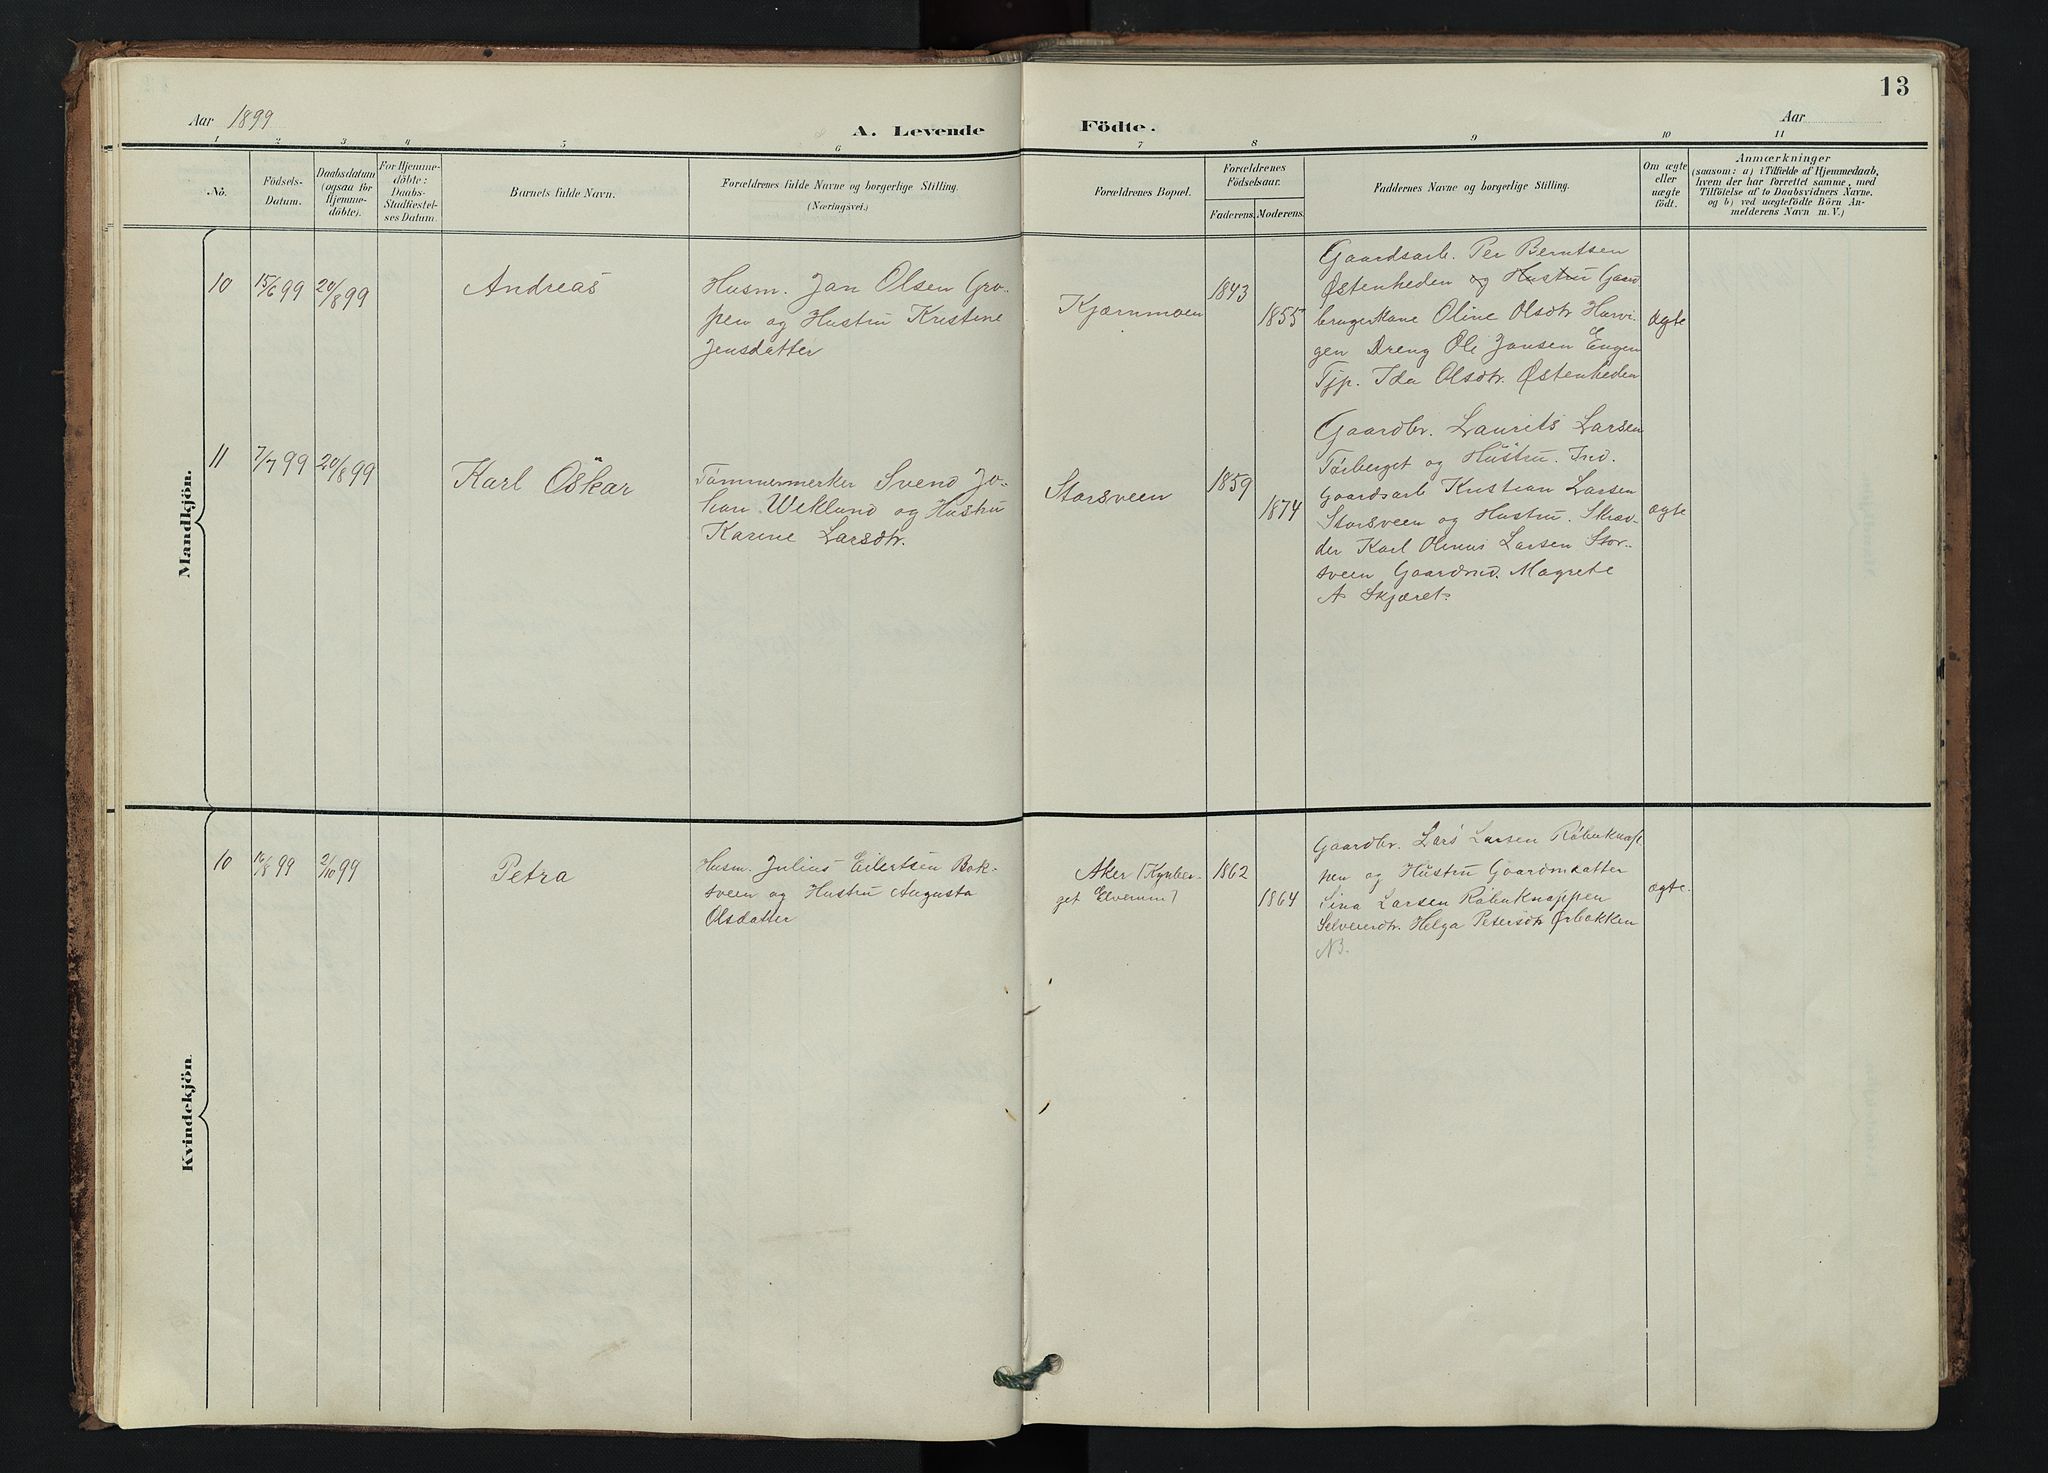 13
Aar 1899
A. Levende Födte.
Aar
1 2 3 4 5 6 7 8 9 10 11
No.
Födsels-
Datum.
Daabsdatum
(ogsaa for
Hjemme-
döbte).
For Hjemme-
döbte:
Daabs-
Stadfæstel-
ses Datum.
Barnets fulde Navn.
Forældrenes fulde Navne og borgerlige Stilling.
(Næringsvei.)
Forældrenes Bopæl.
Forældrenes
Födselsaar.
Faderens.
Moderens.
Faddernes Navne og borgerlige Stilling.
Om ægte
eller
uægte
født.
Anmærkninger
(saasom: a) i Tilfælde af Hjemmedaab,
hvem der har forrettet samme, med
Tilföielse af to Daabsvidners Navne.
og b) ved uægtefödte Börn An-
melderens Navn m. V.)
Mandkjön.
10
15/6 99
20/8 99
Andreas
Husm. Jan Olsen Gro-
pen og Hustru Kristine
Jensdatter
Kjærnmoen
1843
1855
Gaardsarb. Per Berntsen
Østenheden og Hustru Gaard
brugerkone Oline Olsdtr Harvi-
gen Dreng Ole Jansen Engen
Tjp. Ida Olsdtr. Østenheden
ægte
11
7/7 99
20/8 99
Karl Oskar
Tømmermerker Svend Jo-
han Wiklund og Hustru
Karine Larsdtr.
Storsveen
1859
1874
Gaardbr. Laurits Larsen
Tørberget og Hustru. Ind.
Gaardsarb Kristian Larsen
Storsveen og Hustru. Skræd-
der Karl Olinus Larsen Stor-
sveen Gaardmd. Magrete
A Skjæret.
ægte
Kvindekjön.
10
16/8 99
2/10 99
Petra
Husm. Julius Eilertsen Bak-
sveen og Hustru Augusta
Olsdatter
Aker [Kynber-
get Elverum]
1862
1864
Gaardbr. Lars Larsen Røbuknap
pen og Hustru Gaardmdatter
Sina Larsen Røbuknappen
Selveierdtr. Helga Petersdtr Ørbakken
NB.
ægte.